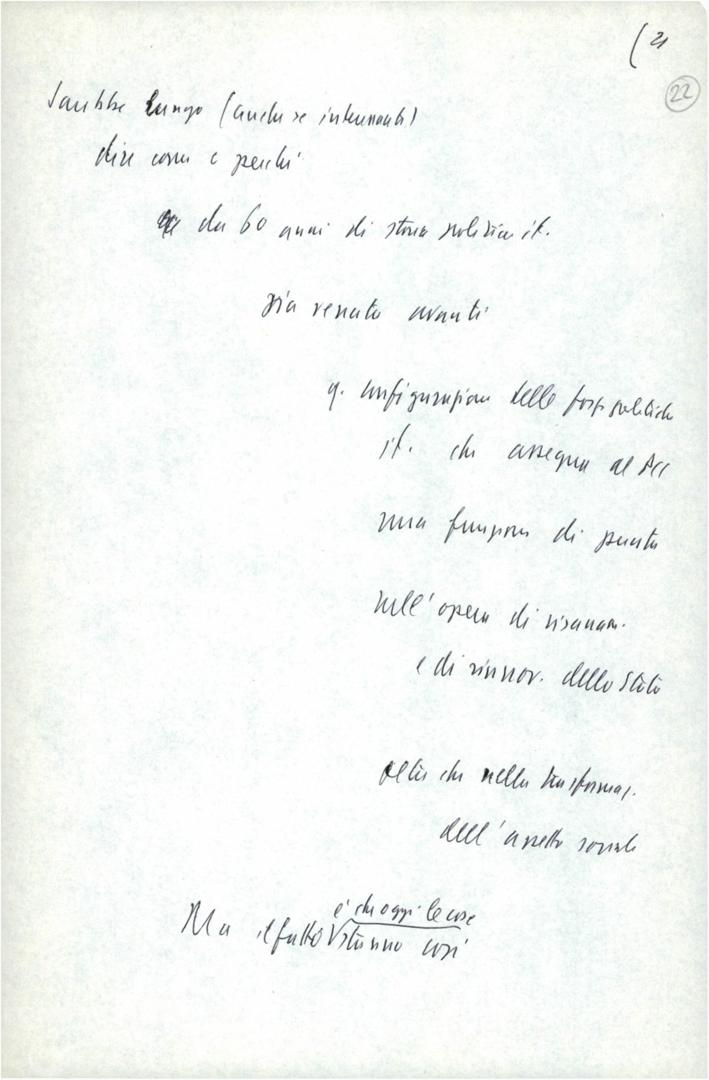 (21
22
Sarebbe lungo (anche se interessante)
dire come e perché
da 60 anni di storia politica it.
sia venuta avanti
q. configurazione delle forze politiche
it. che assegna al PCI
una funzione di punta
nell'opera di risanam.
e di rinnov. dello Stato
oltre che nella trasformaz.
dell'assetto sociale
Ma il fatto è che oggi le cose
stanno così